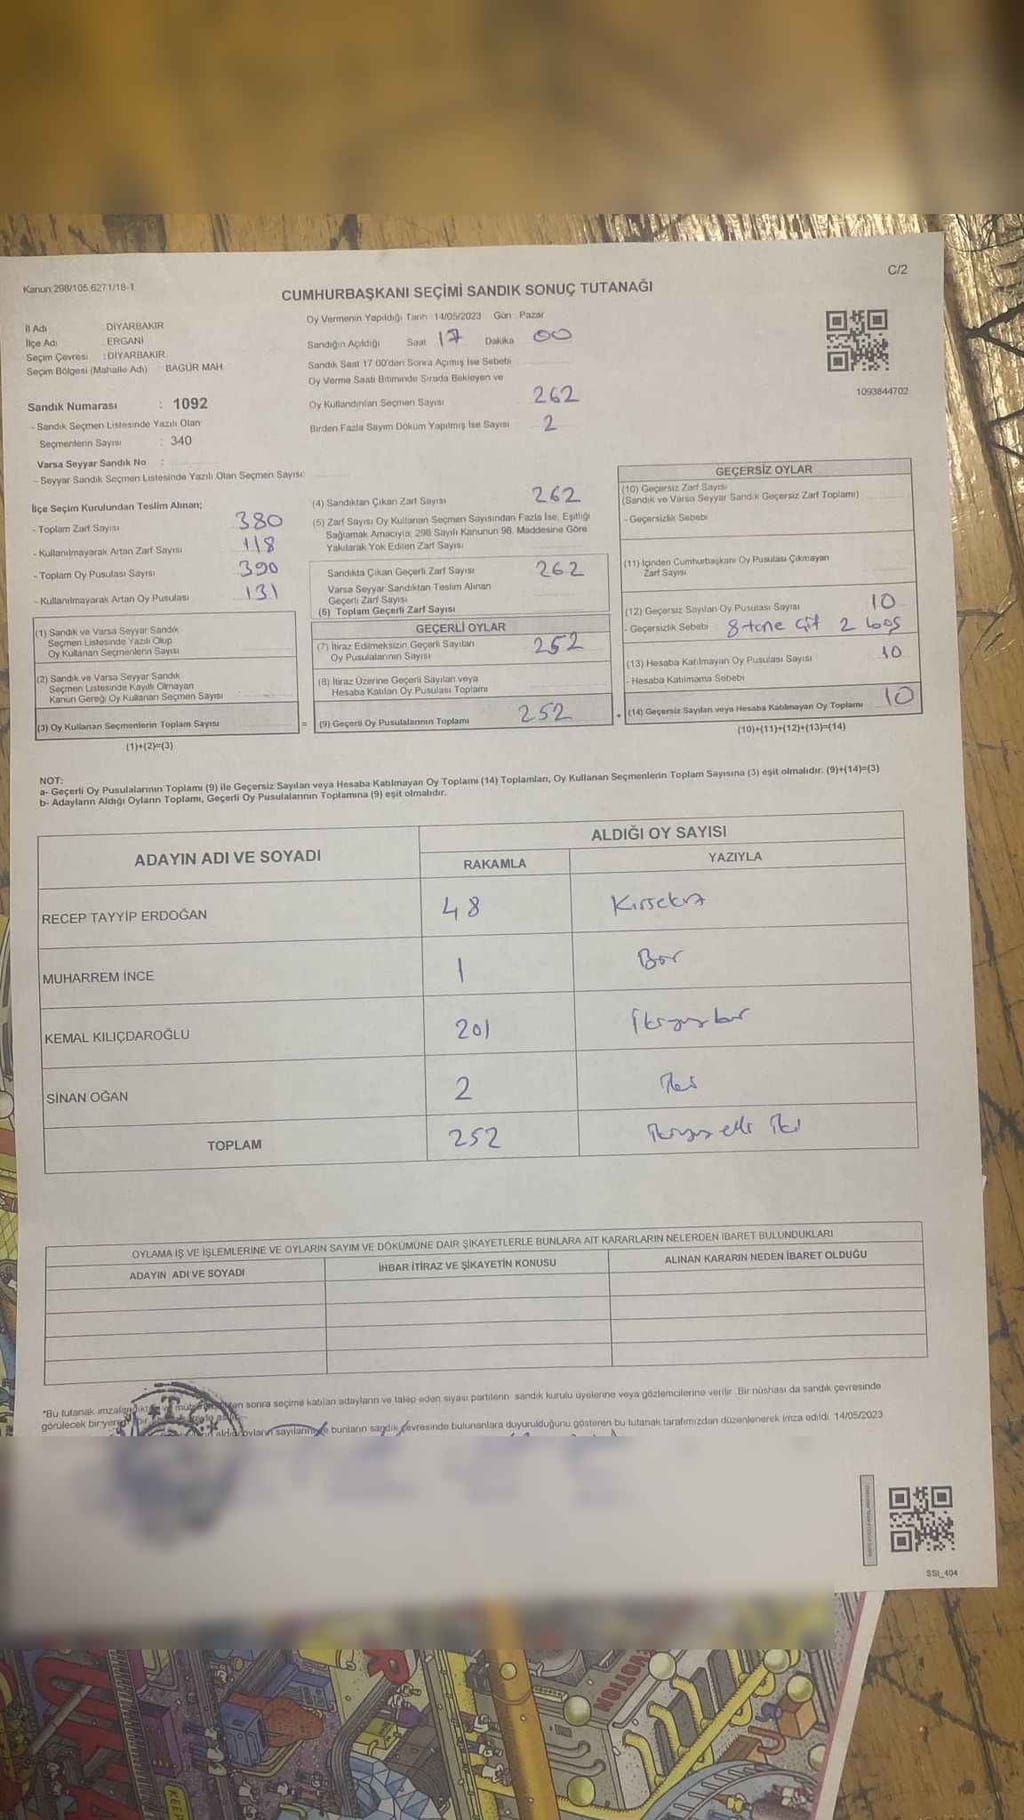 Kanun:298/105,6271/18-1
C/2
CUMHURBAŞKANI SEÇİMİ SANDIK SONUÇ TUTANAĞI
İl Adı DİYARBAKIR
İlçe Adı ERGANİ
Seçim Çevresi : DİYARBAKIR
Seçim Bölgesi (Mahalle Adı) BAGÜR MAH.
Sandık Numarası : 1092
- Sandık Seçmen Listesinde Yazılı Olan
Seçmenlerin Sayısı : 340
Varsa Seyyar Sandık No :
- Seyyar Sandık Seçmen Listesinde Yazılı Olan Seçmen Sayısı:
Oy Vermenin Yapıldığı Tarih : 14/05/2023 Gün : Pazar
Sandığın Açıldığı Saat 17 Dakika 00
Sandık Saat 17:00'den Sonra Açılmış İse Sebebi
Oy Verme Saati Bitiminde Sırada Bekleyen ve
Oy Kullandırılan Seçmen Sayısı 262
Birden Fazla Sayım Döküm Yapılmış İse Sayısı 2
1093844702
İlçe Seçim Kurulundan Teslim Alınan;
- Toplam Zarf Sayısı 380
- Kullanılmayarak Artan Zarf Sayısı 118
- Toplam Oy Pusulası Sayısı 390
- Kullanılmayarak Artan Oy Pusulası 131
(1) Sandık ve Varsa Seyyar Sandık
Seçmen Listesinde Yazılı Olup
Oy Kullanan Seçmenlerin Sayısı
(2) Sandık ve Varsa Seyyar Sandık
Seçmen Listesinde Kayıtlı Olmayan
Kanun Gereği Oy Kullanan Seçmen Sayısı
(3) Oy Kullanan Seçmenlerin Toplam Sayısı
(1)+(2)=(3)
(4) Sandıktan Çıkan Zarf Sayısı 262
(5) Zarf Sayısı Oy Kullanan Seçmen Sayısından Fazla İse, Eşitliği
Sağlamak Amacıyla; 298 Sayılı Kanunun 98. Maddesine Göre
Yakılarak Yok Edilen Zarf Sayısı
Sandıkta Çıkan Geçerli Zarf Sayısı 262
Varsa Seyyar Sandıktan Teslim Alınan
Geçerli Zarf Sayısı
(6) Toplam Geçerli Zarf Sayısı
GEÇERLİ OYLAR
(7) İtiraz Edilmeksizin Geçerli Sayılan
Oy Pusulalarının Sayısı 252
(8) İtiraz Üzerine Geçerli Sayılan veya
Hesaba Katılan Oy Pusulası Toplamı
= (9) Geçerli Oy Pusulalarının Toplamı 252
GEÇERSİZ OYLAR
(10) Geçersiz Zarf Sayısı
(Sandık ve Varsa Seyyar Sandık Geçersiz Zarf Toplamı)
- Geçersizlik Sebebi
(11) İçinden Cumhurbaşkanı Oy Pusulası Çıkmayan
Zarf Sayısı
(12) Geçersiz Sayılan Oy Pusulası Sayısı 10
- Geçersizlik Sebebi 8 tane çift 2 boş
(13) Hesaba Katılmayan Oy Pusulası Sayısı 10
- Hesaba Katılmama Sebebi
+ (14) Geçersiz Sayılan veya Hesaba Katılmayan Oy Toplamı 10
(10)+(11)+(12)+(13)=(14)
NOT:
a- Geçerli Oy Pusulalarının Toplamı (9) ile Geçersiz Sayılan veya Hesaba Katılmayan Oy Toplamı (14) Toplamları, Oy Kullanan Seçmenlerin Toplam Sayısına (3) eşit olmalıdır. (9)+(14)=(3)
b- Adayların Aldığı Oyların Toplamı, Geçerli Oy Pusulalarının Toplamına (9) eşit olmalıdır.
ADAYIN ADI VE SOYADI
ALDIĞI OY SAYISI
RAKAMLA YAZIYLA
RECEP TAYYİP ERDOĞAN 48 Kırsekiz
MUHARREM İNCE 1 Bir
KEMAL KILIÇDAROĞLU 201 İkiyüzbir
SİNAN OĞAN 2 İki
TOPLAM 252 ikiyüzelli iki
OYLAMA İŞ VE İŞLEMLERİNE VE OYLARIN SAYIM VE DÖKÜMÜNE DAİR ŞİKAYETLERLE BUNLARA AİT KARARLARIN NELERDEN İBARET BULUNDUKLARI
ADAYIN ADI VE SOYADI İHBAR İTİRAZ VE ŞİKAYETİN KONUSU ALINAN KARARIN NEDEN İBARET OLDUĞU
*Bu tutanak imzalandıktan sonra seçime katılan adayların ve talep eden siyasi partilerin sandık kurulu üyelerine veya gözlemcilerine verilir. Bir nüshası da sandık çevresinde
görülecek bir yere
oyların sayılarını bunların sandık çevresinde bulunanlara duyurulduğunu gösteren bu tutanak tarafımızdan düzenlenerek imza edildi. 14/05/2023
SSI_404
KEEP